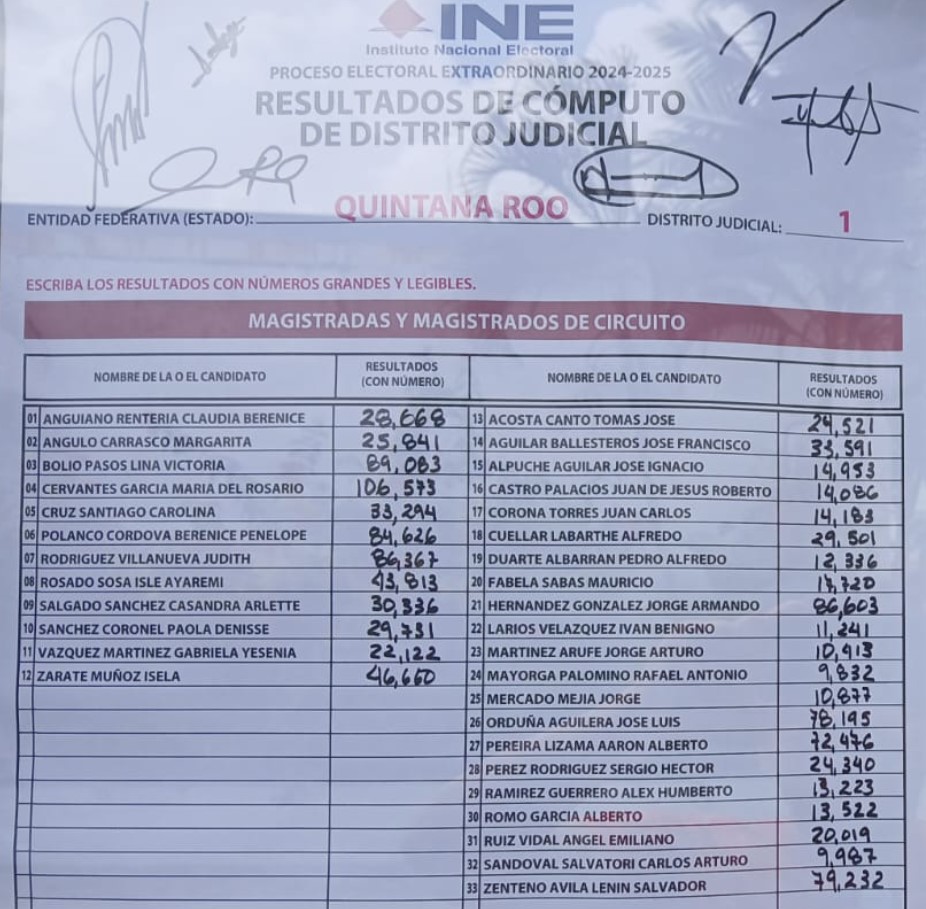 INE
Instituto Nacional Electoral
PROCESO ELECTORAL EXTRAORDINARIO 2024-2025
RESULTADOS DE CÓMPUTO
DE DISTRITO JUDICIAL
ENTIDAD FEDERATIVA (ESTADO): QUINTANA ROO DISTRITO JUDICIAL: 1
ESCRIBA LOS RESULTADOS CON NÚMEROS GRANDES Y LEGIBLES.
MAGISTRADAS Y MAGISTRADOS DE CIRCUITO
NOMBRE DE LA O EL CANDIDATO RESULTADOS (CON NÚMERO)
01 ANGUIANO RENTERIA CLAUDIA BERENICE 28,668
02 ANGULO CARRASCO MARGARITA 25,841
03 BOLIO PASOS LINA VICTORIA 89,083
04 CERVANTES GARCIA MARIA DEL ROSARIO 106,573
05 CRUZ SANTIAGO CAROLINA 33,294
06 POLANCO CORDOVA BERENICE PENELOPE 84,626
07 RODRIGUEZ VILLANUEVA JUDITH 86,367
08 ROSADO SOSA ISLE AYAREMI 43,813
09 SALGADO SANCHEZ CASANDRA ARLETTE 30,336
10 SANCHEZ CORONEL PAOLA DENISSE 29,731
11 VAZQUEZ MARTINEZ GABRIELA YESENIA 22,122
12 ZARATE MUÑOZ ISELA 46,660
NOMBRE DE LA O EL CANDIDATO RESULTADOS (CON NÚMERO)
13 ACOSTA CANTO TOMAS JOSE 24,521
14 AGUILAR BALLESTEROS JOSE FRANCISCO 33,591
15 ALPUCHE AGUILAR JOSE IGNACIO 14,953
16 CASTRO PALACIOS JUAN DE JESUS ROBERTO 14,086
17 CORONA TORRES JUAN CARLOS 14,183
18 CUELLAR LABARTHE ALFREDO 29,501
19 DUARTE ALBARRAN PEDRO ALFREDO 12,336
20 FABELA SABAS MAURICIO
21 HERNANDEZ GONZALEZ JORGE ARMANDO 86,603
22 LARIOS VELAZQUEZ IVAN BENIGNO 11,241
23 MARTINEZ ARUFE JORGE ARTURO 10,913
24 MAYORGA PALOMINO RAFAEL ANTONIO 9,832
25 MERCADO MEJIA JORGE 10,877
26 ORDUÑA AGUILERA JOSE LUIS 78,195
27 PEREIRA LIZAMA AARON ALBERTO 72,476
28 PEREZ RODRIGUEZ SERGIO HECTOR 24,340
29 RAMIREZ GUERRERO ALEX HUMBERTO 13,223
30 ROMO GARCIA ALBERTO 13,522
31 RUIZ VIDAL ANGEL EMILIANO 20,019
32 SANDOVAL SALVATORI CARLOS ARTURO 9,987
33 ZENTENO AVILA LENIN SALVADOR 79,232